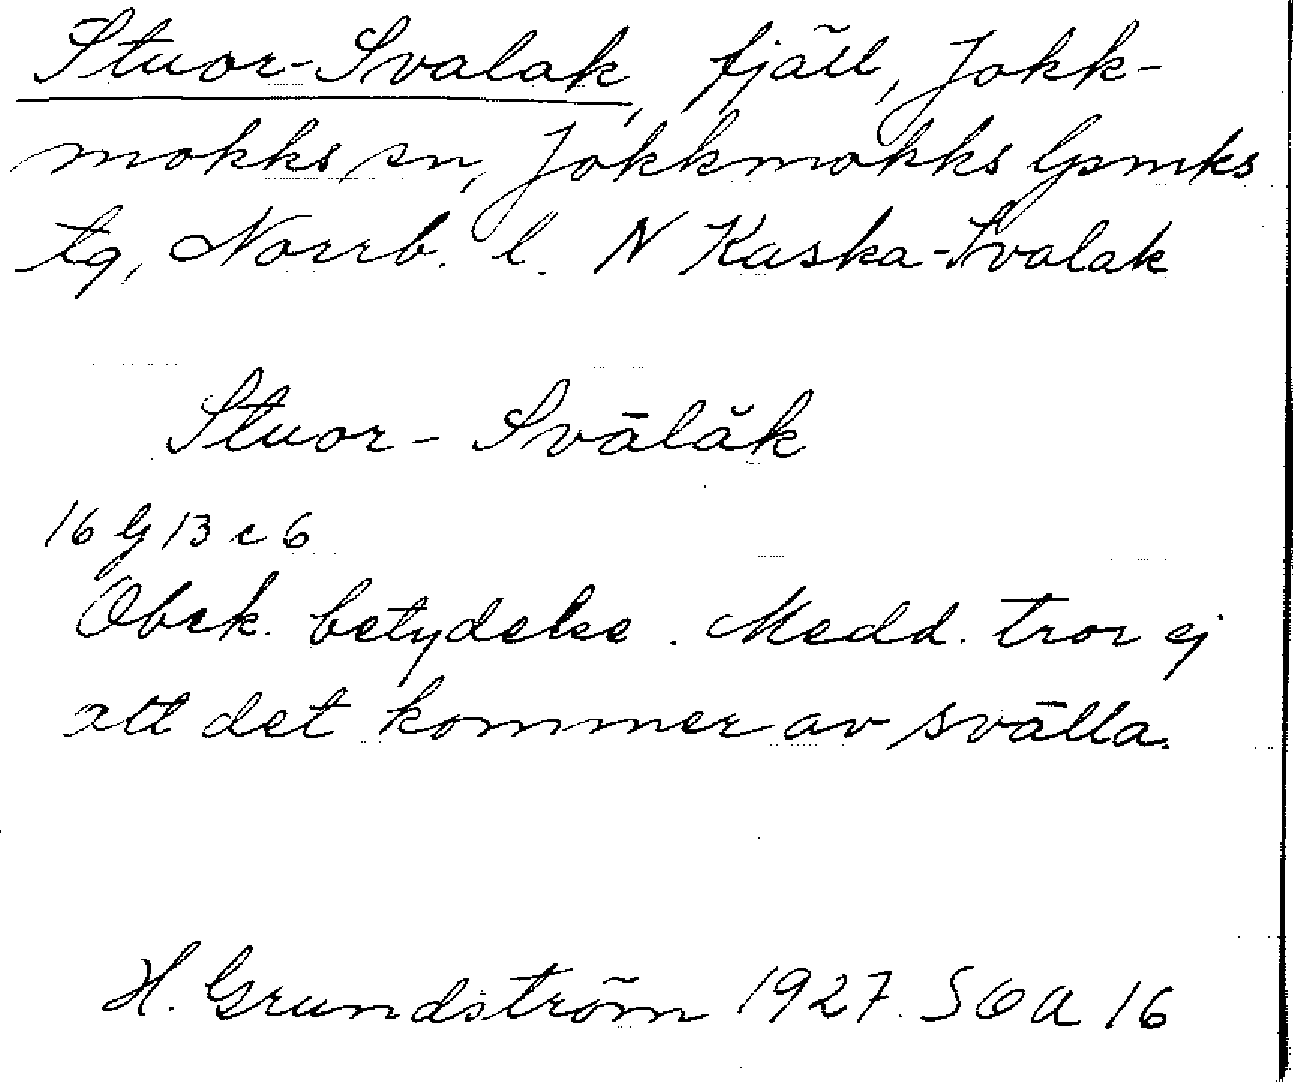 Stuor-Svalak, fjäll, Jokk-
mokks sn, Jokkmokks lpmks
tg, Norrb. l. N Kaska-Svalak
Stuor-Svālăk
16 G 13 c 6
Obek. betydelse. Medd. tror ej
att det kommer av svālla.
H. Grundström 1927. SOA 16